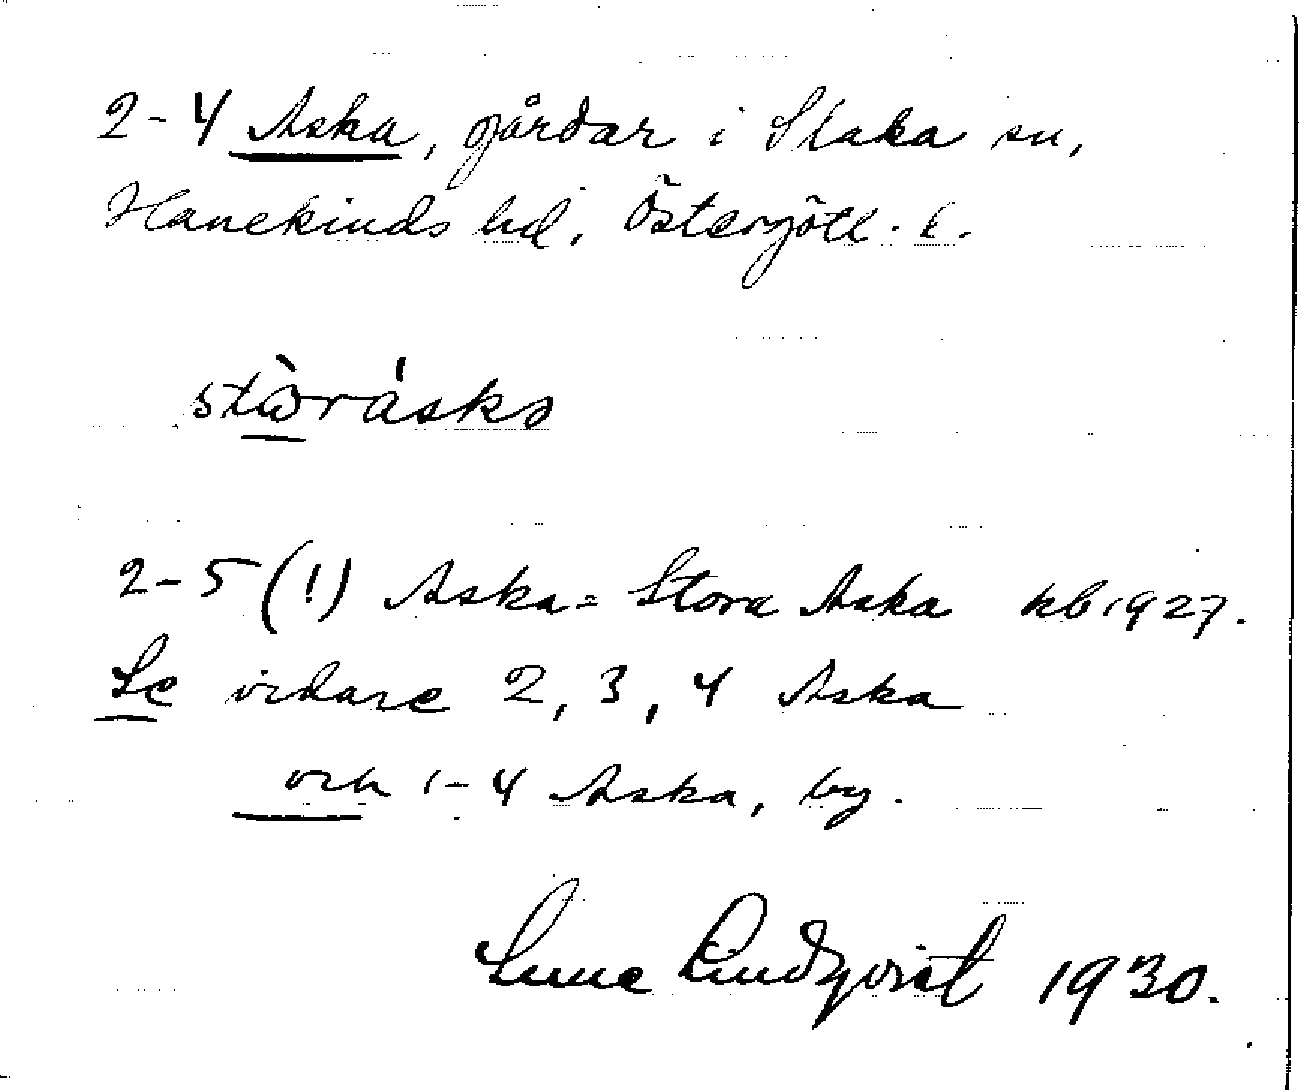 2-4 Aska, gårdar i Slaka sn,
Hanekinds hd, Östergötl. l.
stòráska
2-5 (!) Aska = Stora Aska kb 1927.
Se vidare 2, 3, 4 Aska
och 1-4 Aska, by.
Sune Lindqvist 1930.